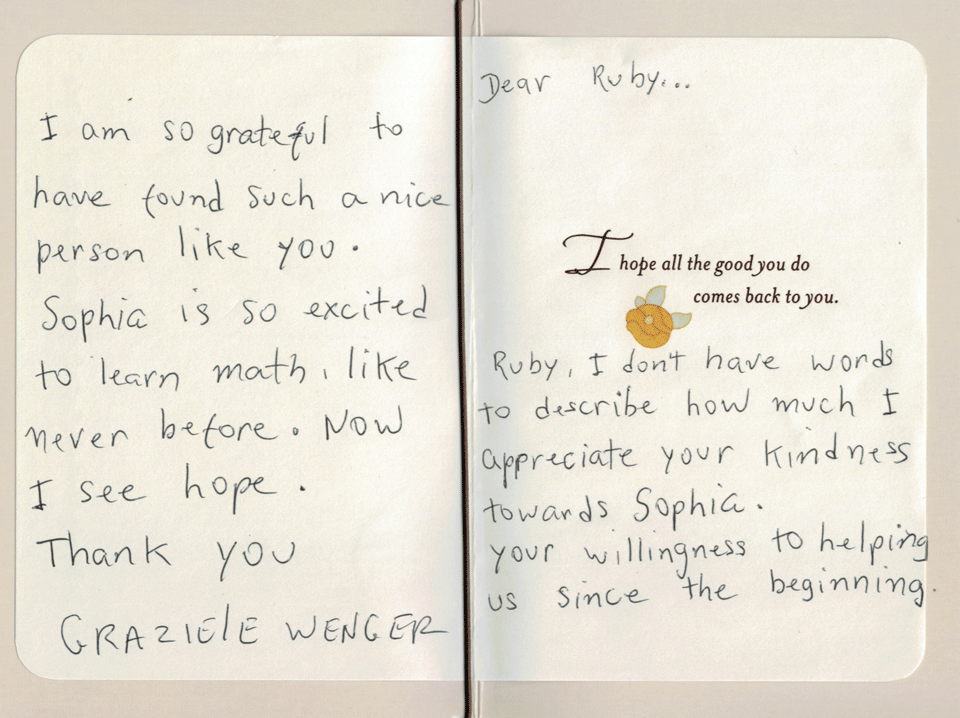 I am so grateful to
have found such a nice
person like you.
Sophia is so excited
to learn math, like
never before. Now
I see hope.
Thank you
GRAZIElE WENGER
Dear Ruby...
I hope all the good you do
comes back to you.
Ruby, I don't have words
to describe how much I
appreciate your kindness
towards Sophia.
your willingness to helping
us since the beginning.